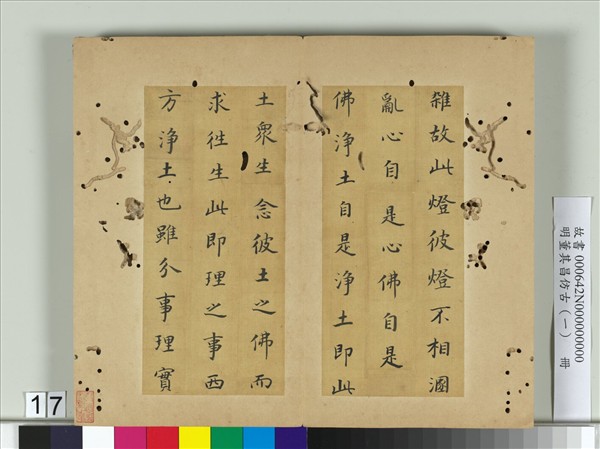 雜故此燈彼燈不相溷
亂心自是心佛自是
佛淨土自是淨土即此
土眾生念彼土之佛而
求往生此即理之事西
方淨土也雖分事理實
故書 000642N000000000
明董其昌仿古（一） 冊
17